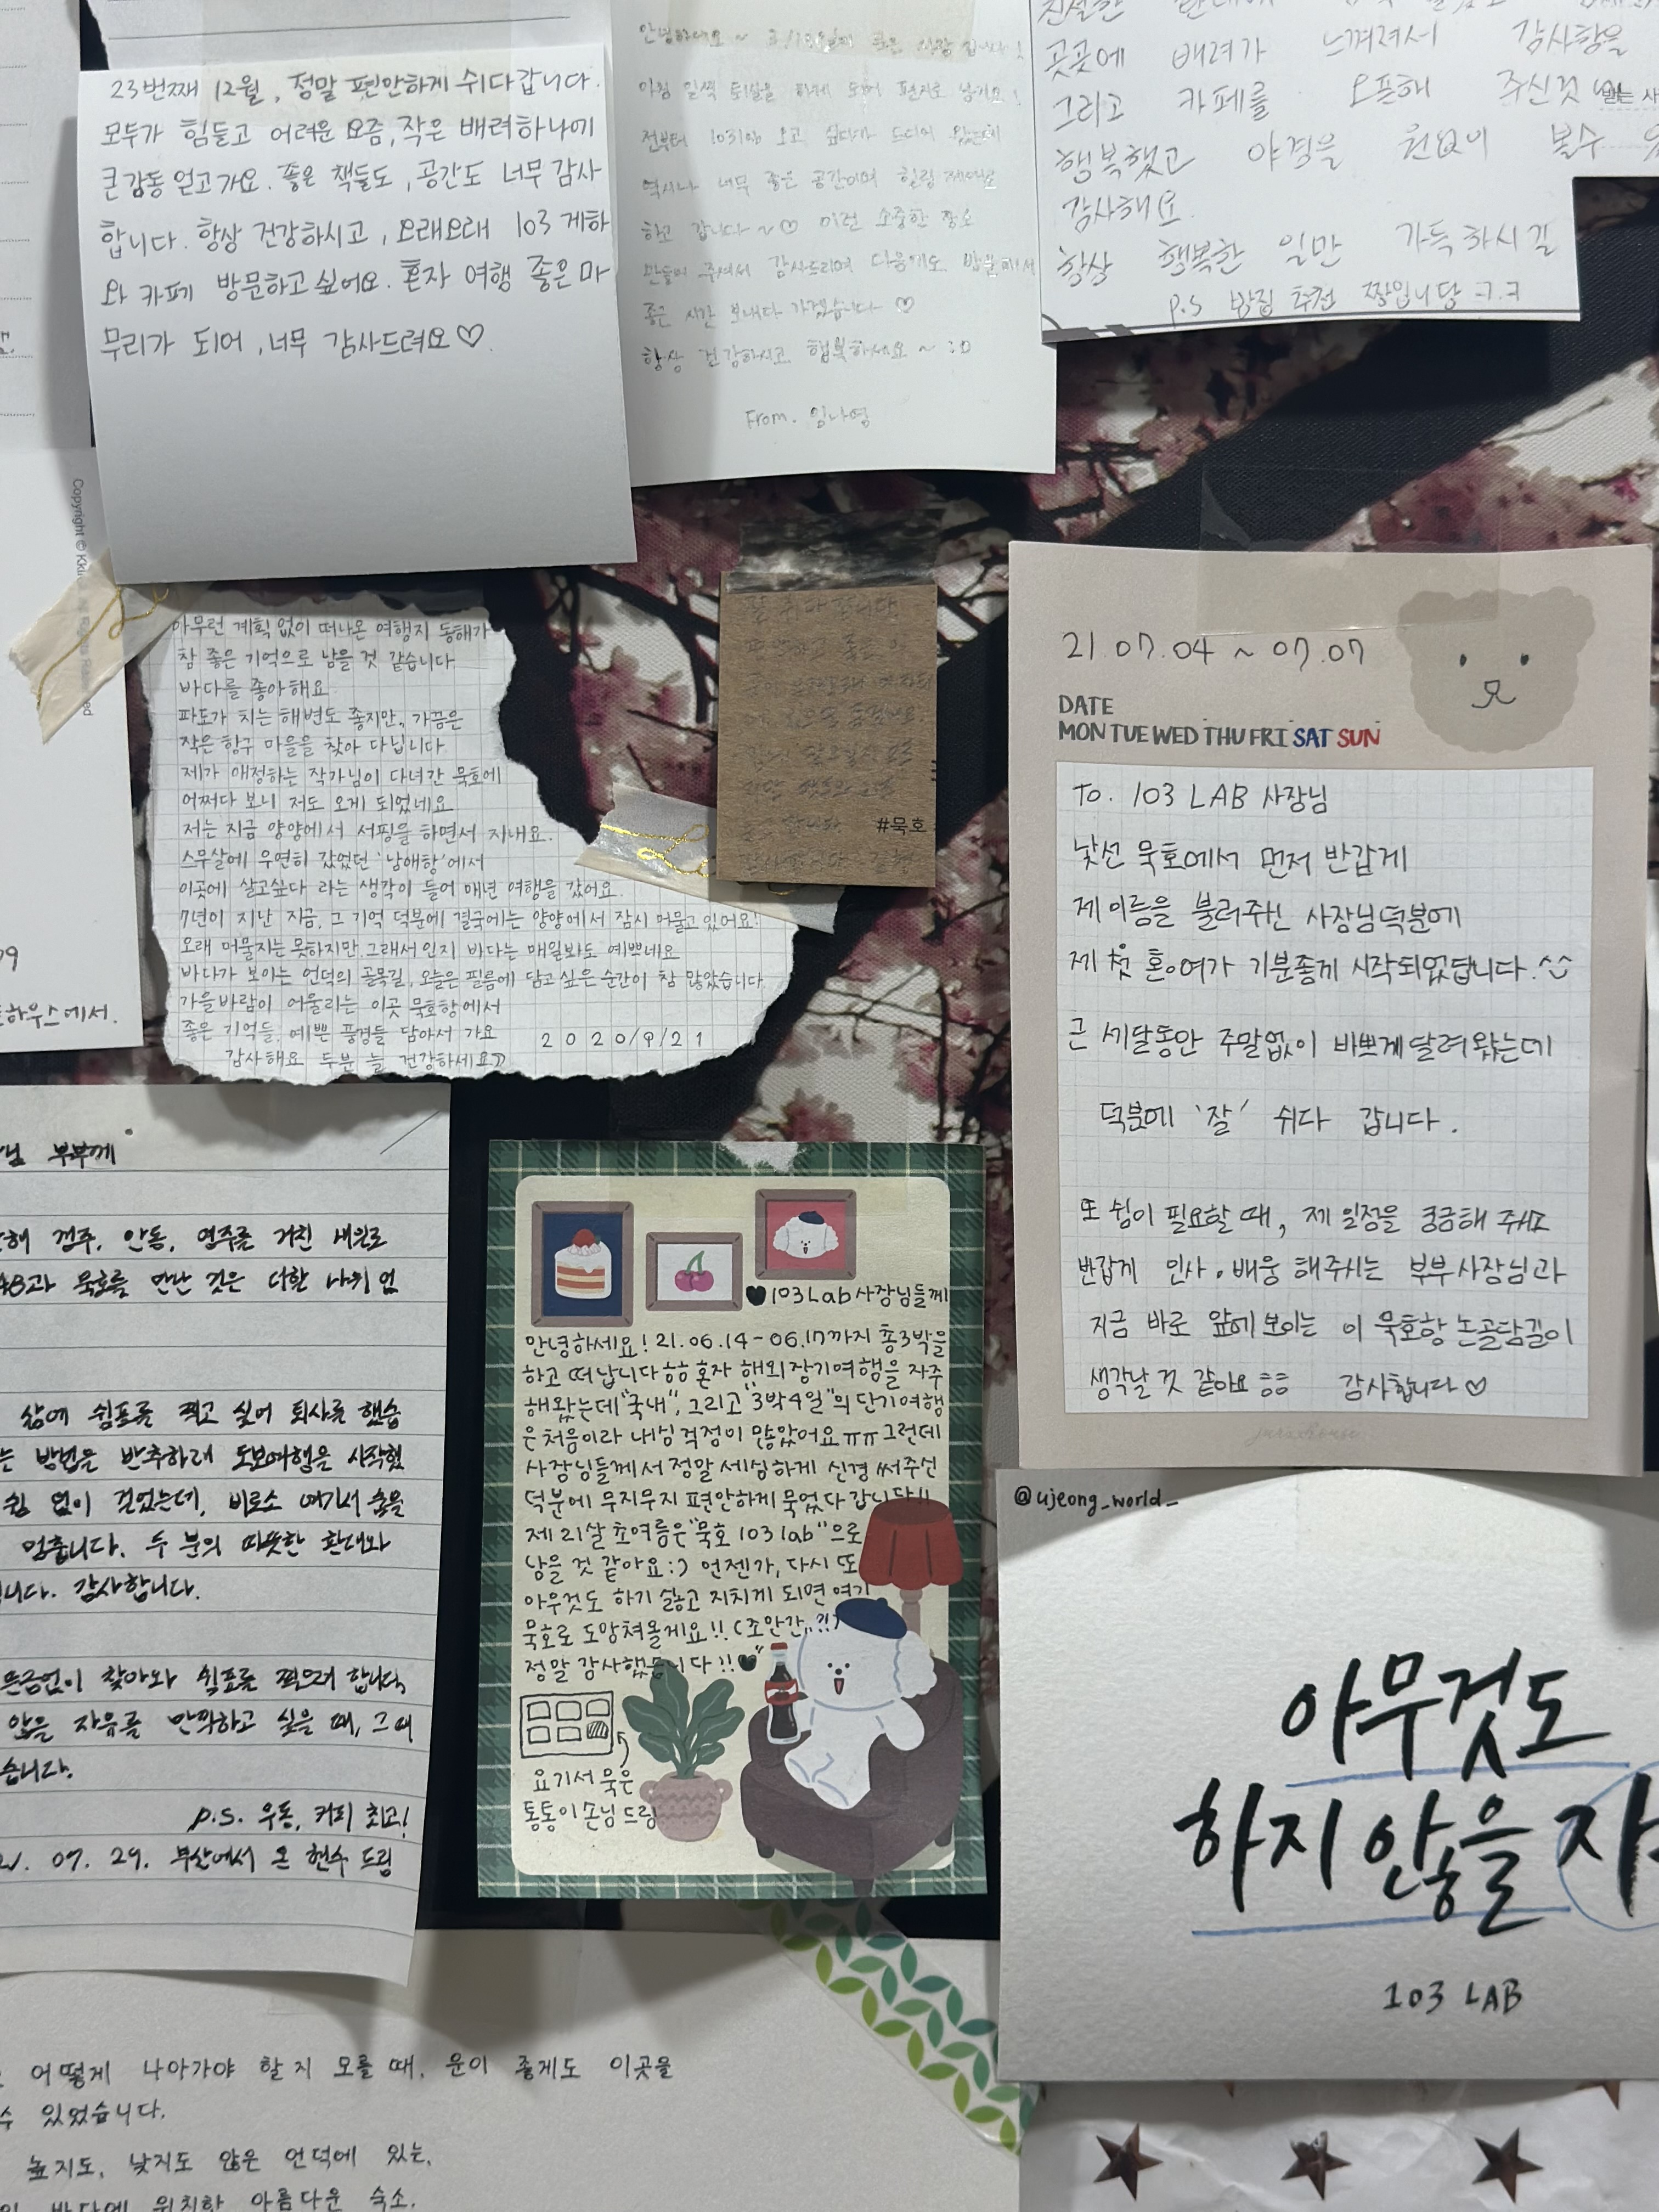 23번째 12월, 정말 편안하게 쉬다갑니다.
모두가 힘들고 어려운 요즘, 작은 배려하나에
큰 감동 얻고가요. 좋은 책들도, 공간도 너무 감사
합니다. 항상 건강하시고, 오래오래 103 게하
와 카페 방문하고싶어요. 혼자 여행 좋은 마
무리가 되어, 너무 감사드려요♡
안녕하세요~
아침 일찍 퇴실을 하게 되어 편지로 남겨요!
전부터 103lab 오고 싶다가 드디어 왔는데
역시나 너무 좋은 공간이며 힐링
하고 갑니다~♡ 이런 소중한 장소
만들어 주셔서 감사드리며 다음에도 방문해서
좋은 시간 보내다 가겠습니다 ♡
항상 건강하시고 행복하세요~ :D
From. 임나영
곳곳에 배려가 느껴져서 감사함을
그리고 카페를 오픈해 주신것
행복했고 야경을 원없이 볼수
감사해요.
항상 행복한 일만 가득하시길
P.S 밥집 추천 짱입니당 ㅋ.ㅋ
Copyright ©
아무런 계획 없이 떠나온 여행지 동해가
참 좋은 기억으로 남을 것 같습니다
바다를 좋아해요
파도가 치는 해변도 좋지만, 가끔은
작은 항구 마을을 찾아 다닙니다
제가 애정하는 작가님이 다녀간 묵호에
어쩌다 보니 저도 오게 되었네요
저는 지금 양양에서 서핑을 하면서 지내요.
스무살에 우연히 갔었던 '남애항'에서
이곳에 살고싶다 라는 생각이 들어 매년 여행을 갔어요.
7년이 지난 지금, 그 기억 덕분에 결국에는 양양에서 잠시 머물고있어요!
오래 머물지는못하지만 그래서인지 바다는 매일봐도 예쁘네요
바다가 보이는 언덕의 골목길, 오늘은 필름에 담고싶은 순간이 참 많았습니다
가을바람이 어울리는 이곳 묵호항에서
좋은 기억들, 예쁜 풍경들 담아서 가요 2020/9/21
감사해요 두분 늘 건강하세요
#묵호
21.07.04 ~ 07.07
DATE
MON TUE WED THU FRI SAT SUN
To. 103 LAB 사장님
낯선 묵호에서 먼저 반갑게
제 이름을 불러주신 사장님덕분에
제 첫 혼여가 기분좋게 시작되었답니다.^^
근 세달동안 주말없이 바쁘게 달려왔는데
덕분에 '잘' 쉬다 갑니다.
또 쉼이 필요할 때, 제 일정을 궁금해 주시고
반갑게 인사·배웅 해주시는 부부사장님과
지금 바로 앞에 보이는 이 묵호항 논골담길이
생각날 것 같아요 ㅎㅎ 감사합니다♡
하우스에서.
님 부부께
경주, 안동, 영주를 거친 내일로
묵호를 만난 것은 더할 나위 없
삶에 쉼표를 찍고 싶어 퇴사를 했습
는 방법을 반추하려 도보여행을 시작했
쉼 없이 걸었는데, 비로소 여기서 숨을
멈춥니다. 두 분의 따뜻한 환대와
니다. 감사합니다.
뜬금없이 찾아와 쉼표를 찍으려 합니다.
않을 자유를 만끽하고 싶을 때, 그때
습니다.
p.s. 우동, 커피 최고!
07. 29. 부산에서 온 현수 드림
♥103Lab 사장님들께
안녕하세요! 21.06.14-06.17까지 총3박을
하고 떠납니다ㅎㅎ 혼자 해외 장기여행을 자주
해왔는데 "국내", 그리고 "3박4일"의 단기여행
은 처음이라 내심 걱정이 많았어요ㅠㅠ 그런데
사장님들께서 정말 세심하게 신경 써주신
덕분에 무지무지 편안하게 묵었다 갑니다!!
제 21살 초여름은 "묵호 103 lab"으로
남을 것 같아요:) 언젠가, 다시 또
아무것도 하기 싫고 지치게 되면 여기
묵호로 도망쳐올게요!! (조만간..?!)
정말 감사했습니다!!♥
요기서 묵은
통통이손님 드림
@ujeong_world_
아무것도
하지 않을
103 LAB
어떻게 나아가야 할지 모를 때, 운이 좋게도 이곳을
수 있었습니다.
높지도, 낮지도 않은 언덕에 있는,
바다에 위치한 아름다운 숙소.